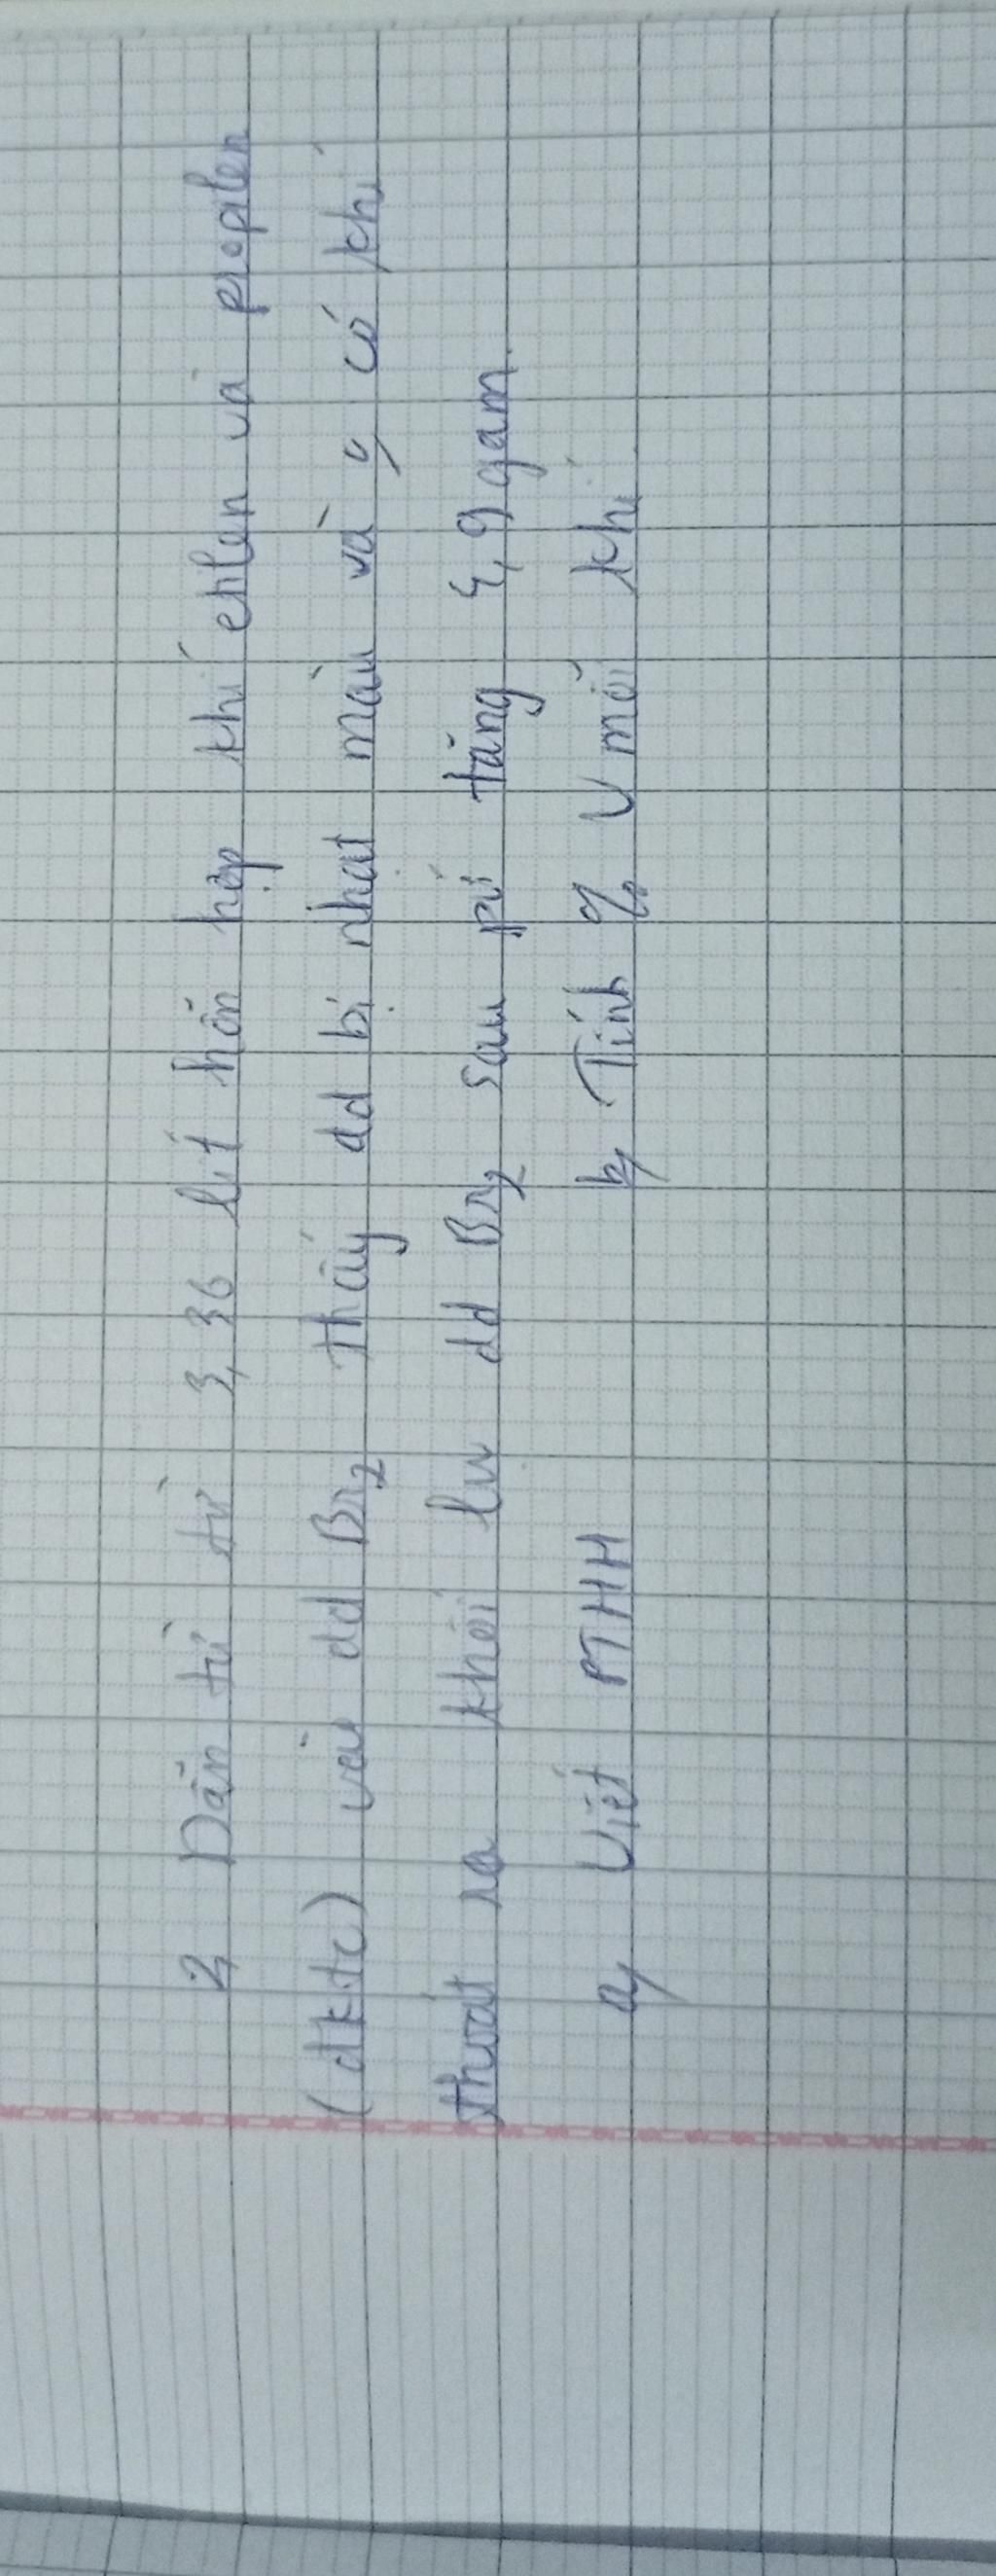 2, Dẫn từ từ 3,36 lít hỗn hợp khí etilen và propilen
(đktc) vào dd Br2 thấy dd bị nhạt màu và ko có khí
thoát ra khối lượng dd Br2 sau pứ tăng 4,9 gam.
a, Viết PTHH b, Tính % V mỗi khí.